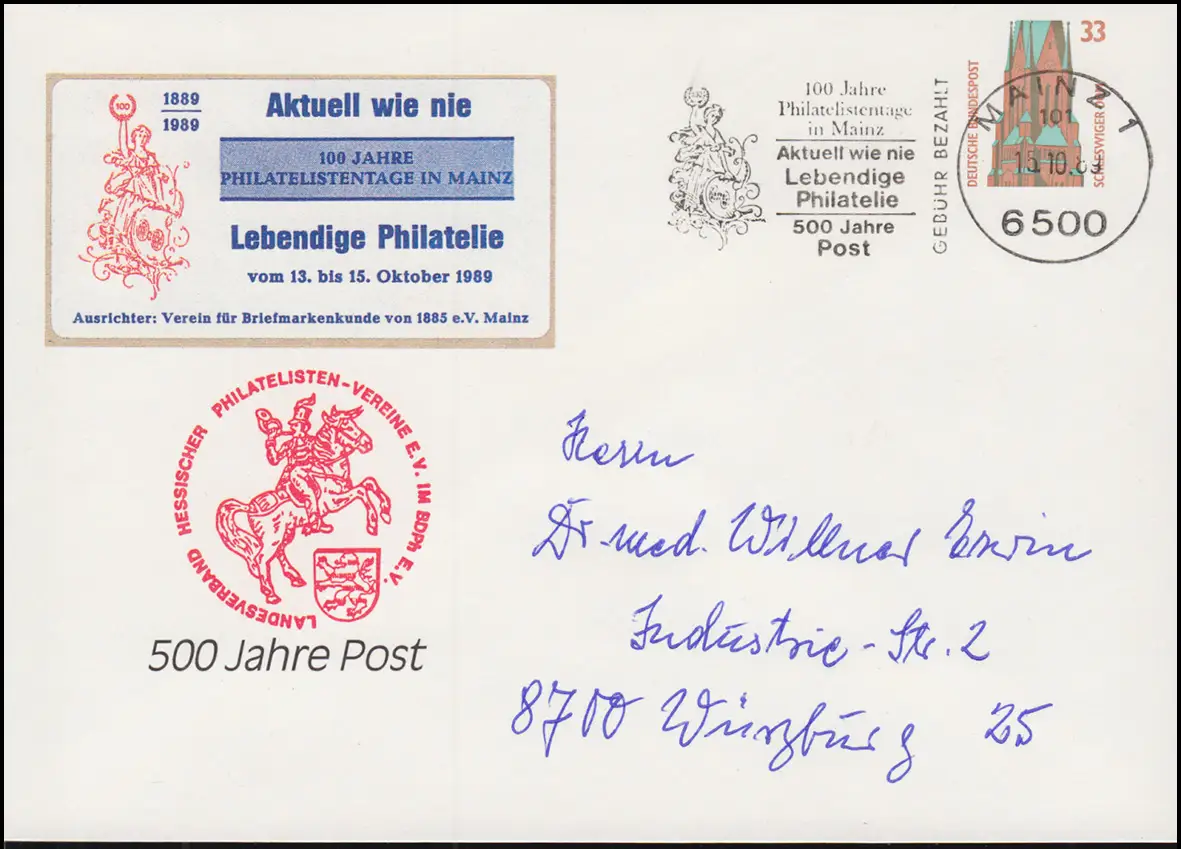 1889
1989
100
Aktuell wie nie
100 JAHRE
PHILATELISTENTAGE IN MAINZ
Lebendige Philatelie
vom 13. bis 15. Oktober 1989
Ausrichter: Verein für Briefmarkenkunde von 1885 e.V. Mainz
100 Jahre
Philatelistentage
in Mainz
Aktuell wie nie
Lebendige
Philatelie
500 Jahre
Post
GEBÜHR BEZAHLT
DEUTSCHE BUNDESPOST
33
SCHLESWIGER DOM
MAINZ 1
101
15.10.89
6500
LANDESVERBAND HESSISCHER PHILATELISTEN-VEREINE E.V. IM BDPh E.V.
500 Jahre Post
Herrn
Dr. med. Willner Erwin
Industrie-Str. 2
8700 Würzburg 25